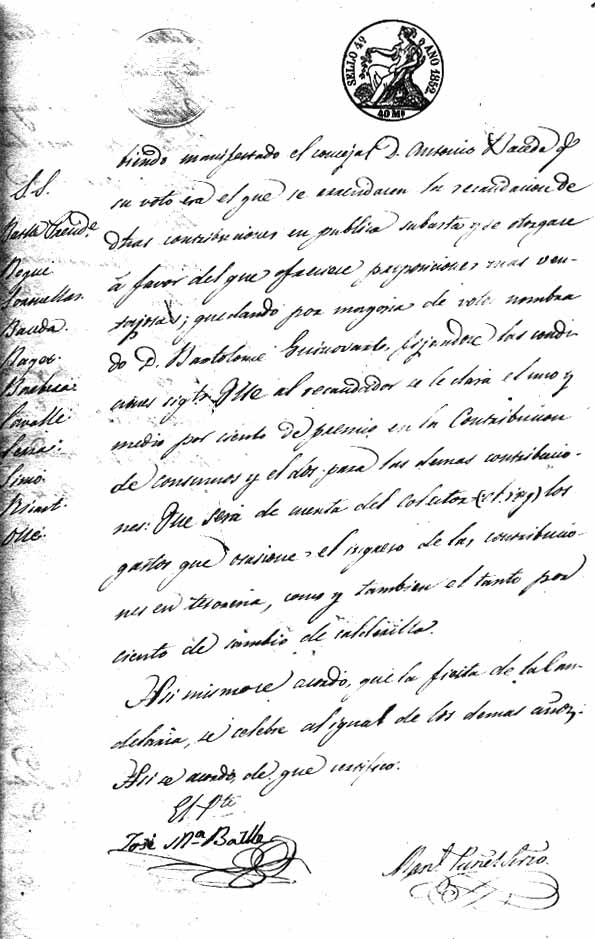 SELLO 4º AÑO 1852.
40 Ms
biendo manifestado el concejal D. Antonio Baceda q
su voto era el que se arrendacen la recaudacion de
dhas contribuciones en publica subasta y se otorgare
á favor del que ofreciese proposiciones mas ven-
tajosas; quedando por mayoria de votos nombra
do D. Bartolomé Guinovart, fijandose las condi-
ciones sigtes Que al recaudador se le dara el uno y
medio por ciento de premio en la Contribucion
de consumos y el dos para las demas contribucio-
nes: Que será de cuenta del Colector los
gastos que ocasione el ingreso de las contribucio-
nes en tesoreria, como y tambien el tanto por
ciento de cambio de calderilla.
Asi mismo se acordó, que la fiesta de la Can-
delaria, se celebre al igual de los demas años;
Asi se acordó, de que certifico.
S.S.
Batlle Presidte
Baceda.
Bages.
Serra:
Simó.
Ricart.
Ollé.
El Pte
José Mª Batlle
Manl. Srio.